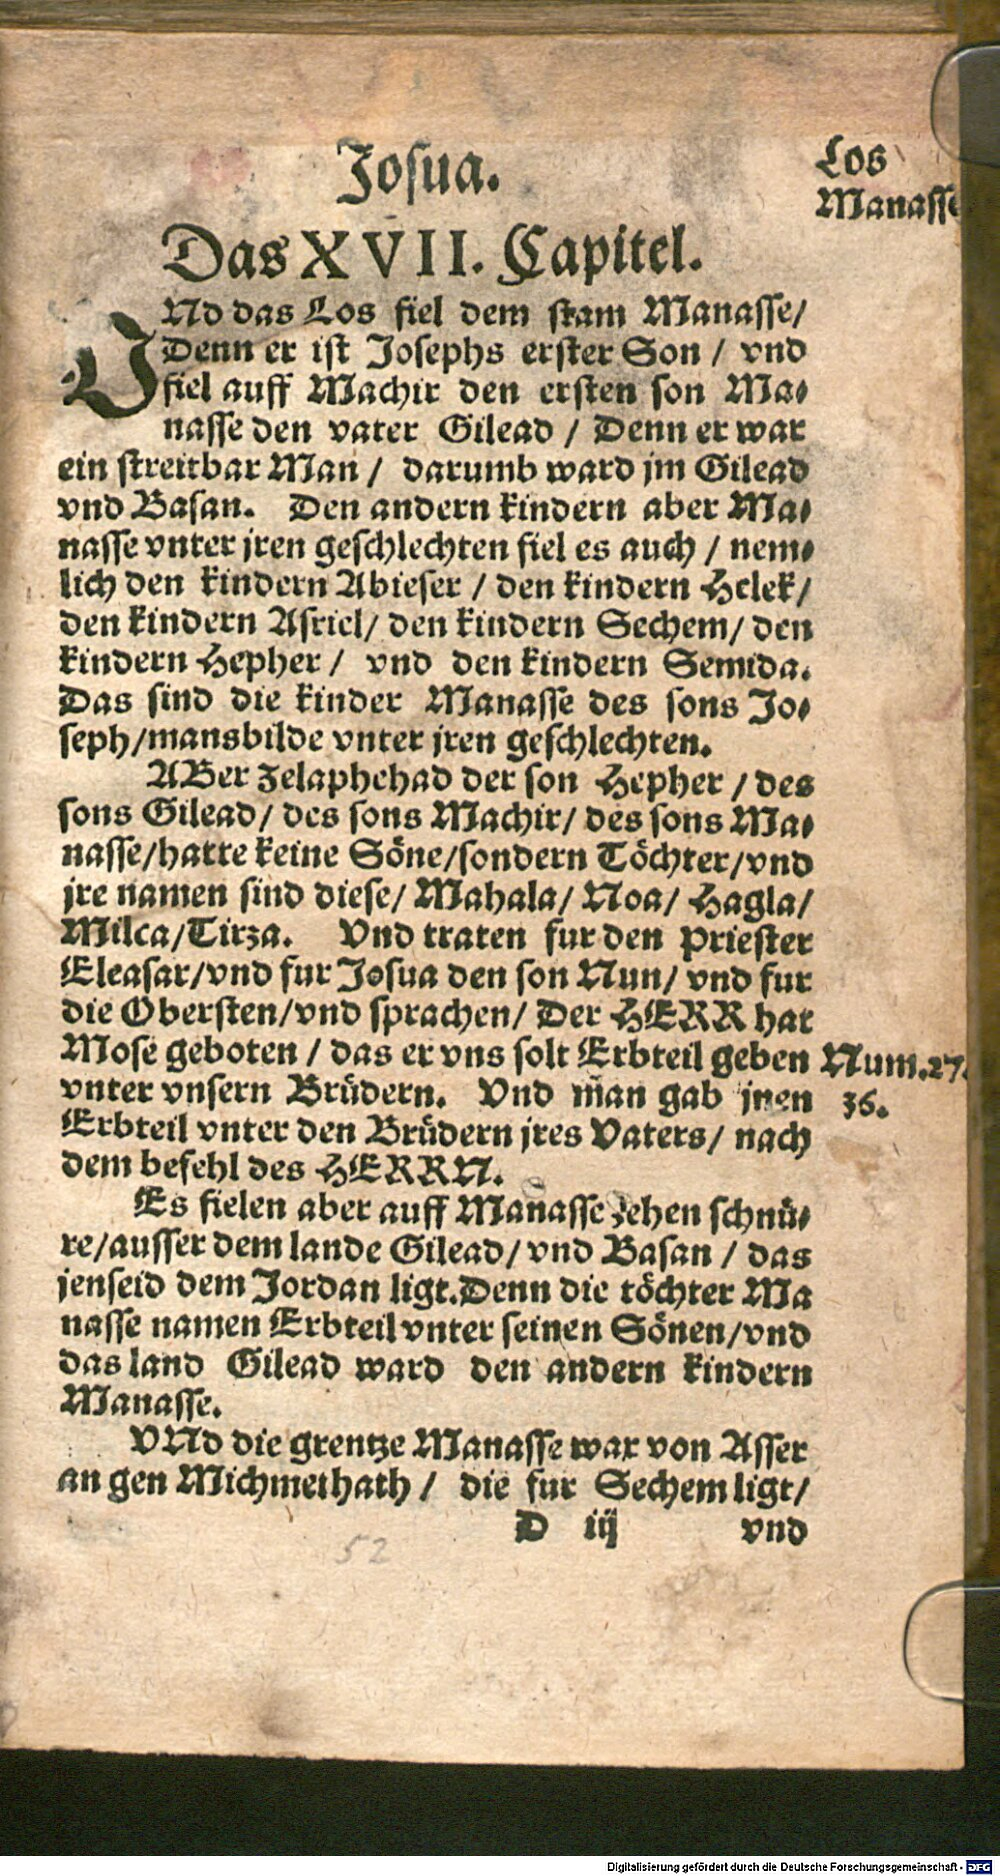 Josua.
Los
Manasse
Das XVII. Capitel.
VNd das Los fiel dem stam Manasse/
Denn er ist Josephs erster Son / vnd
fiel auff Machir den ersten son Ma-
nasse den vater Gilead / Denn er war
ein streitbar Man / darumb ward jm Gilead
vnd Basan. Den andern kindern aber Ma-
nasse vnter jren geschlechten fiel es auch / nem-
lich den kindern Abieser / den kindern Helek/
den kindern Asriel/ den kindern Sechem/ den
kindern Hepher / vnd den kindern Semida.
Das sind die kinder Manasse des sons Jo-
seph/mansbilde vnter jren geschlechten.
ABer Zelaphehad der son Hepher / des
sons Gilead/ des sons Machir/ des sons Ma-
nasse/hatte keine Söne/sondern Töchter/vnd
jre namen sind diese/ Mahala/ Noa/ Hagla/
Milca/Tirza. Vnd traten fur den Priester
Eleasar/vnd fur Josua den son Nun/ vnd fur
die Obersten/vnd sprachen/ Der HERR hat
Mose geboten / das er vns solt Erbteil geben
Num.27.
vnter vnsern Brüdern. Vnd man gab jnen
36.
Erbteil vnter den Brüdern jres Vaters/ nach
dem befehl des HERRN.
Es fielen aber auff Manasse zehen schnü-
re/ausser dem lande Gilead/vnd Basan / das
jenseid dem Jordan ligt.Denn die töchter Ma
nasse namen Erbteil vnter seinen Sönen/vnd
das land Gilead ward den andern kindern
Manasse.
VNd die grentze Manasse war von Asser
an gen Michmethath / die fur Sechem ligt/
D iij vnd
52
Digitalisierung gefördert durch die Deutsche Forschungsgemeinschaft - DFG